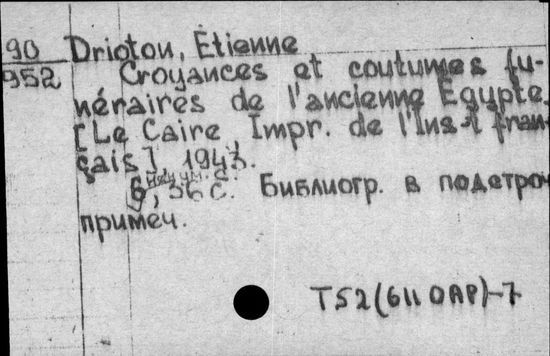 90 Driotou, Étienne
952 Croyances et coutumes fu-
néraires de l'ancienne Egypte.
[Le Caire, Impr. de l'Ins-t fran-
çais], 1943.
36 с. Библиогр. в подстроч
примеч.
TS2(611 ОАР)-7